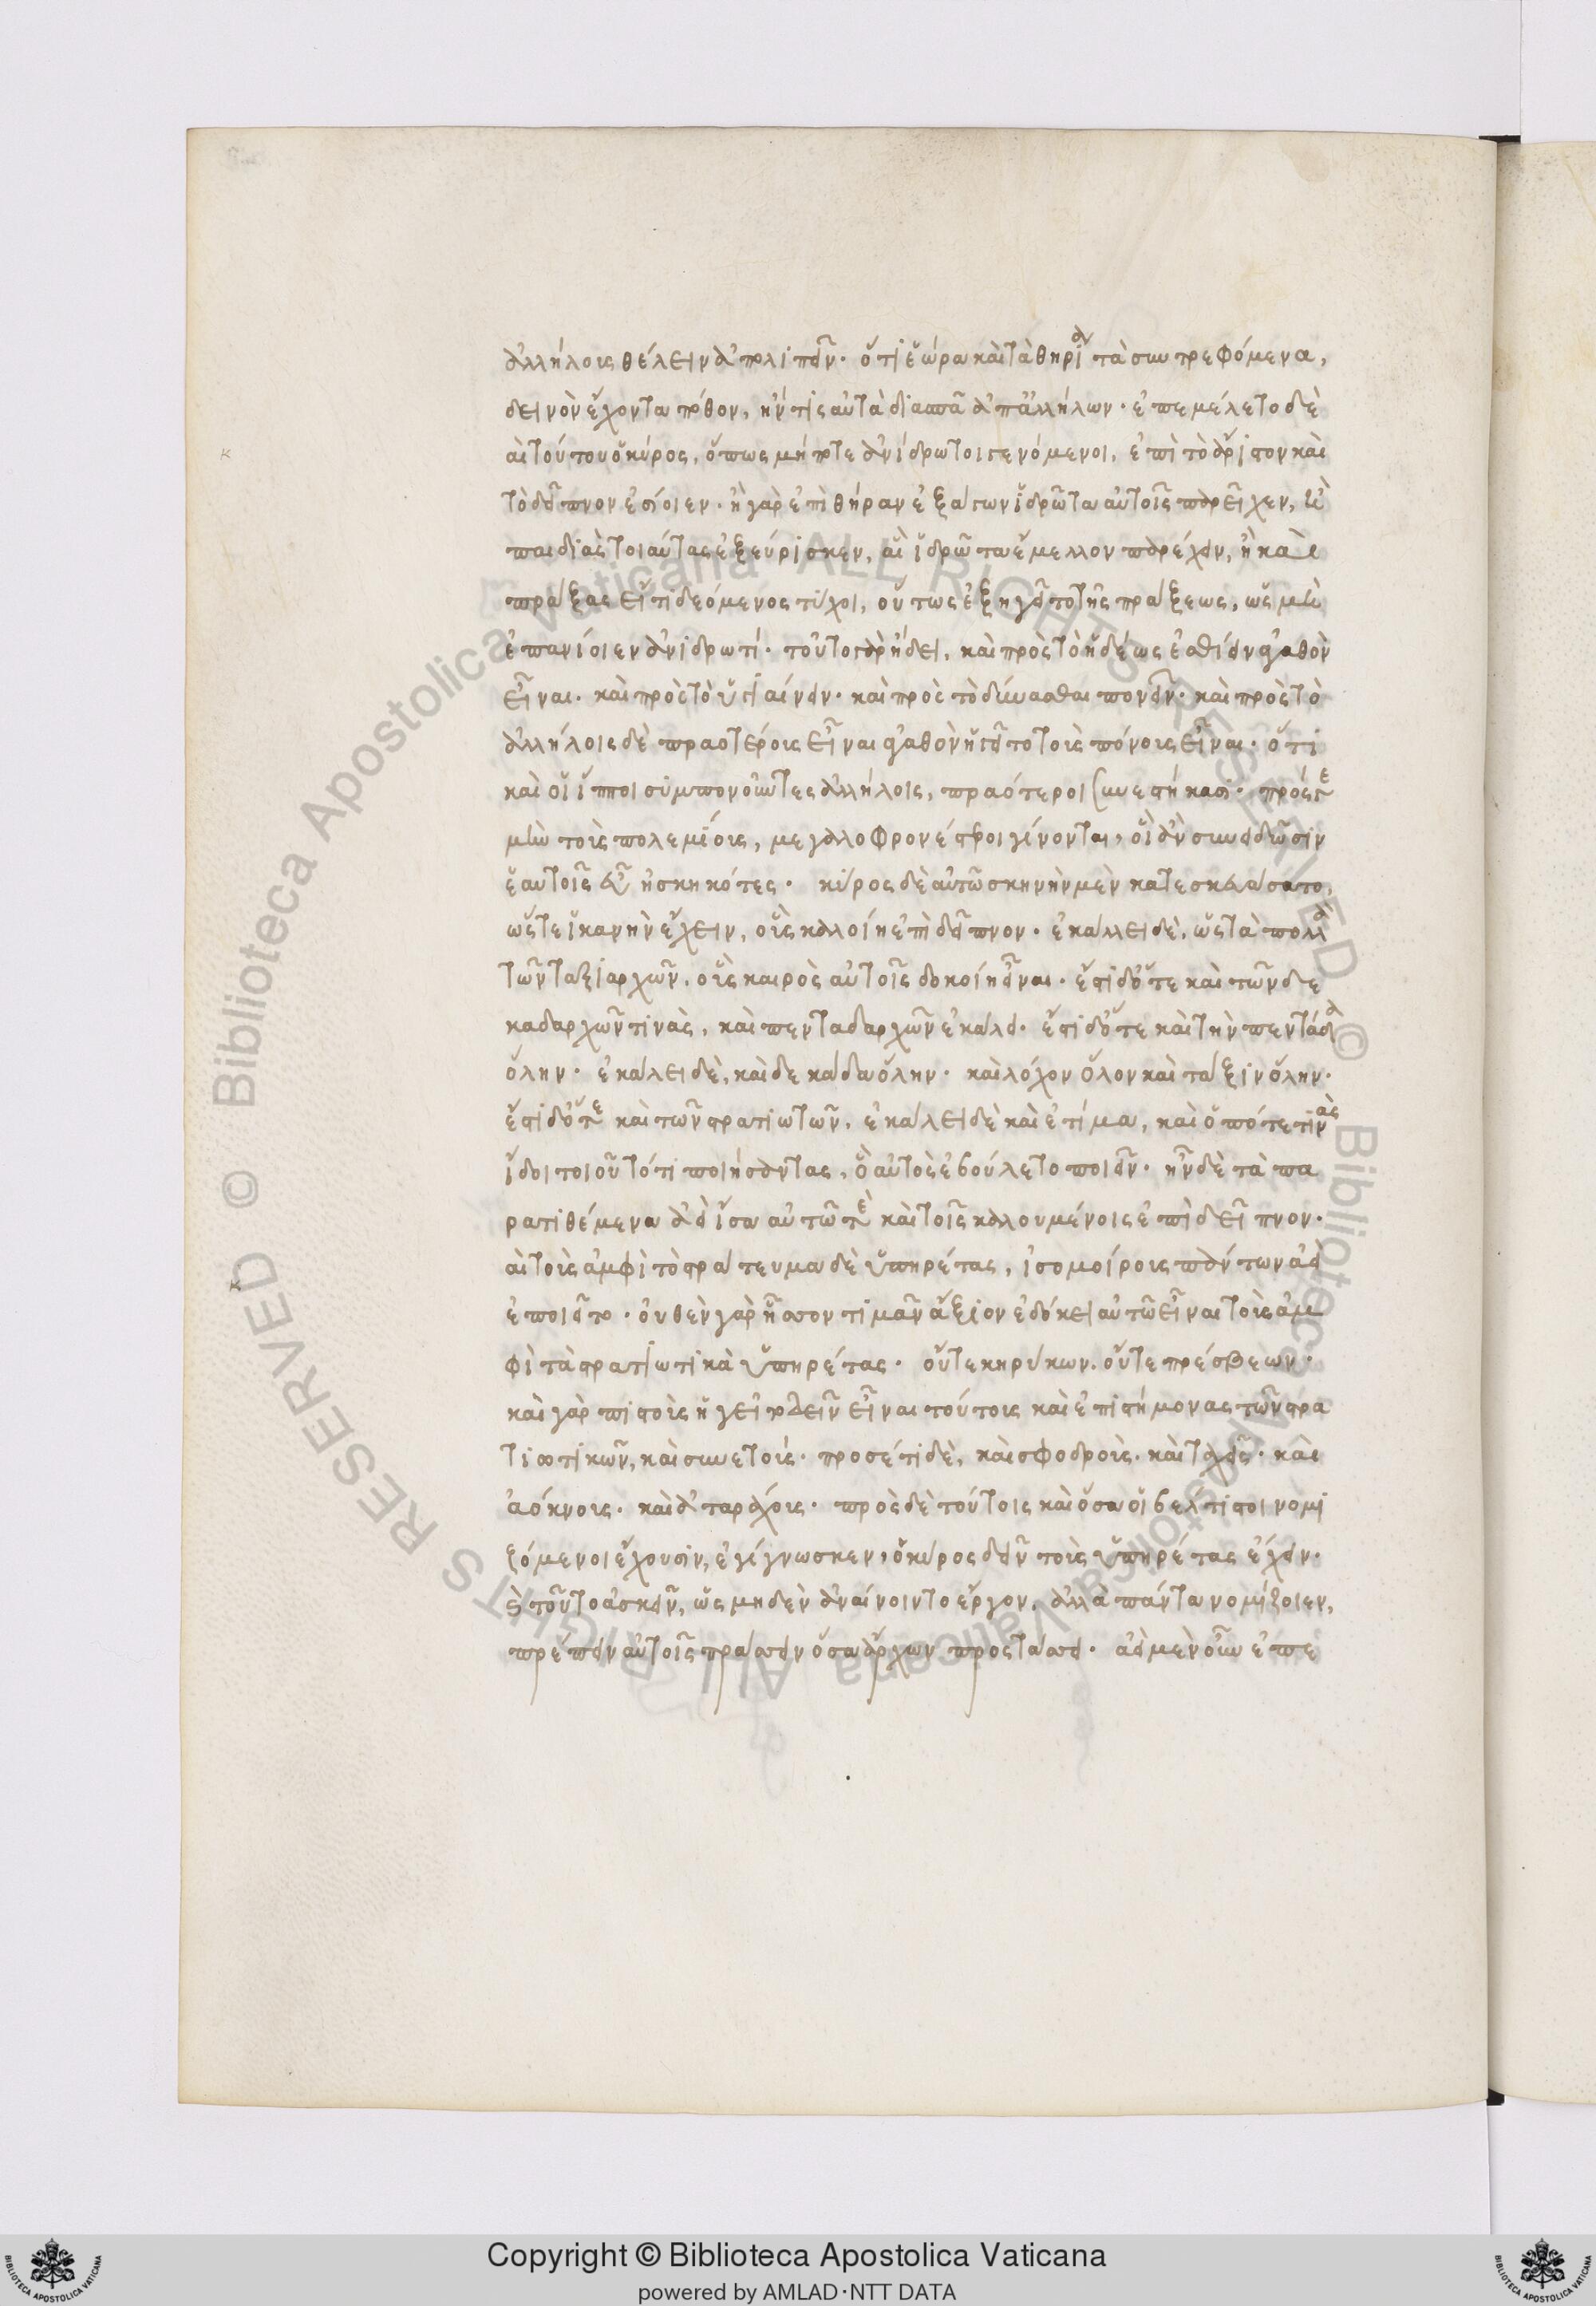 ἀλλήλους θέλειν ἀπολιπεῖν· ὅτι ἑώρα καὶ τὰ θηρία τὰ συντρεφόμενα,
δεινὸν ἔχοντα πόθον, ἤν τις αὐτὰ διασπᾶ ἀπ' ἀλλήλων· ἐπεμέλετο δὲ
καὶ τούτου ὁ κύρος, ὅπως μήποτε ἀνίδρωτοι γενόμενοι, ἐπὶ τὸ ἄριστον καὶ
τὸ δεῖπνον ἐσίοιεν· ἢ γὰρ ἐπὶ θήραν ἐξάγων ἱδρῶτα αὐτοῖς παρεῖχεν, ἢ
παιδιὰς τοιαύτας ἐξεύρισκεν, αἳ ἱδρῶτα ἔμελλον παρέχειν, ἢ καὶ
πράξας εἴ τι δεόμενος τύχοι, οὕτως ἐξηγεῖτο τῆς πράξεως, ὡς μὴ
ἐπανίοιεν ἀνιδρωτί· τοῦτο γὰρ ᾔδει, καὶ πρὸς τὸ ἡδέως ἐσθίειν ἀγαθὸν
εἶναι· καὶ πρὸς τὸ ὑγιαίνειν· καὶ πρὸς τὸ δύνασθαι πονεῖν· καὶ πρὸς τὸ
ἀλλήλοις δὲ πραοτέρους εἶναι ἀγαθὸν ἡγεῖτο τοὺς πόνους εἶναι· ὅτι
καὶ οἱ ἵπποι συμπονοῦντες ἀλλήλοις, πραότεροι συνεστήκασι· πρός γε
μὴν τοὺς πολεμίους, μεγαλοφρονέστεροι γίνονται, οἳ ἂν συνειδῶσιν
ἑαυτοῖς εὖ ἠσκηκότες· κύρος δὲ αὐτῶ σκηνὴν μὲν κατεσκευάσατο,
ὥστε ἱκανὴν ἔχειν, οὓς καλοίη ἐπὶ δεῖπνον· ἐκάλει δὲ, ὡς τὰ πολλὰ
τῶν ταξιάρχων, οὓς καιρὸς αὐτοῖς δοκοίη εἶναι· ἔστι δ' ὅτε καὶ τῶν δε
καδαρχῶν τινὰς, καὶ πενταδαρχῶν ἐκάλει· ἔστι δ' ὅτε καὶ τὴν πεντάδα
ὅλην· ἐκάλει δὲ, καὶ δεκάδα ὅλην· καὶ λόχον ὅλον καὶ τάξιν ὅλην·
ἔστι δ' ὅτε καὶ τῶν στρατιωτῶν, ἐκάλει δὲ καὶ ἐτίμα, καὶ ὁπότε τινὰς
ἴδοι τοιοῦτό τι ποιήσαντας, ὃ αὐτὸς ἐβούλετο ποιεῖν· ἦν δὲ τὰ πα
ρατιθέμενα ἀεὶ ἴσα αὐτῶ τὲ καὶ τοῖς καλουμένοις ἐπὶ δεῖπνον·
καὶ τοὺς ἀμφὶ τὸ στράτευμα δὲ ὑπηρέτας, ἰσομοίρους πάντων ἀεὶ
ἐποιεῖτο· οὐθὲν γὰρ ἧσσον τιμᾶν ἄξιον ἐδόκει αὐτῶ εἶναι τοὺς ἀμ
φὶ τὰ στρατιωτικὰ ὑπηρέτας· οὔτε κηρύκων, οὔτε πρέσβεων·
καὶ γὰρ πιστοὺς ἡγεῖτο δεῖν εἶναι τούτους καὶ ἐπιστήμονας τῶν στρα
τιωτικῶν, καὶ συνετούς· προσέτι δὲ, καὶ σφοδροὺς· καὶ ταχεῖς· καὶ
ἀόκνους· καὶ ἀταράχους· πρὸς δὲ τούτοις καὶ ὅσα οἱ βέλτιστοι νομι
ζόμενοι ἔχουσιν, ἐγίγνωσκεν, ὁ κύρος δεῖν τοὺς ὑπηρέτας ἔχειν·
καὶ τοῦτο ἀσκεῖν, ὡς μηδὲν ἀναίνοιντο ἔργον, ἀλλὰ πάντα νομίζοιεν,
πρέπειν αὐτοῖς πράσσειν ὅσα ἄρχων προστάσσει· ἀεὶ μὲν οὖν ἐπε